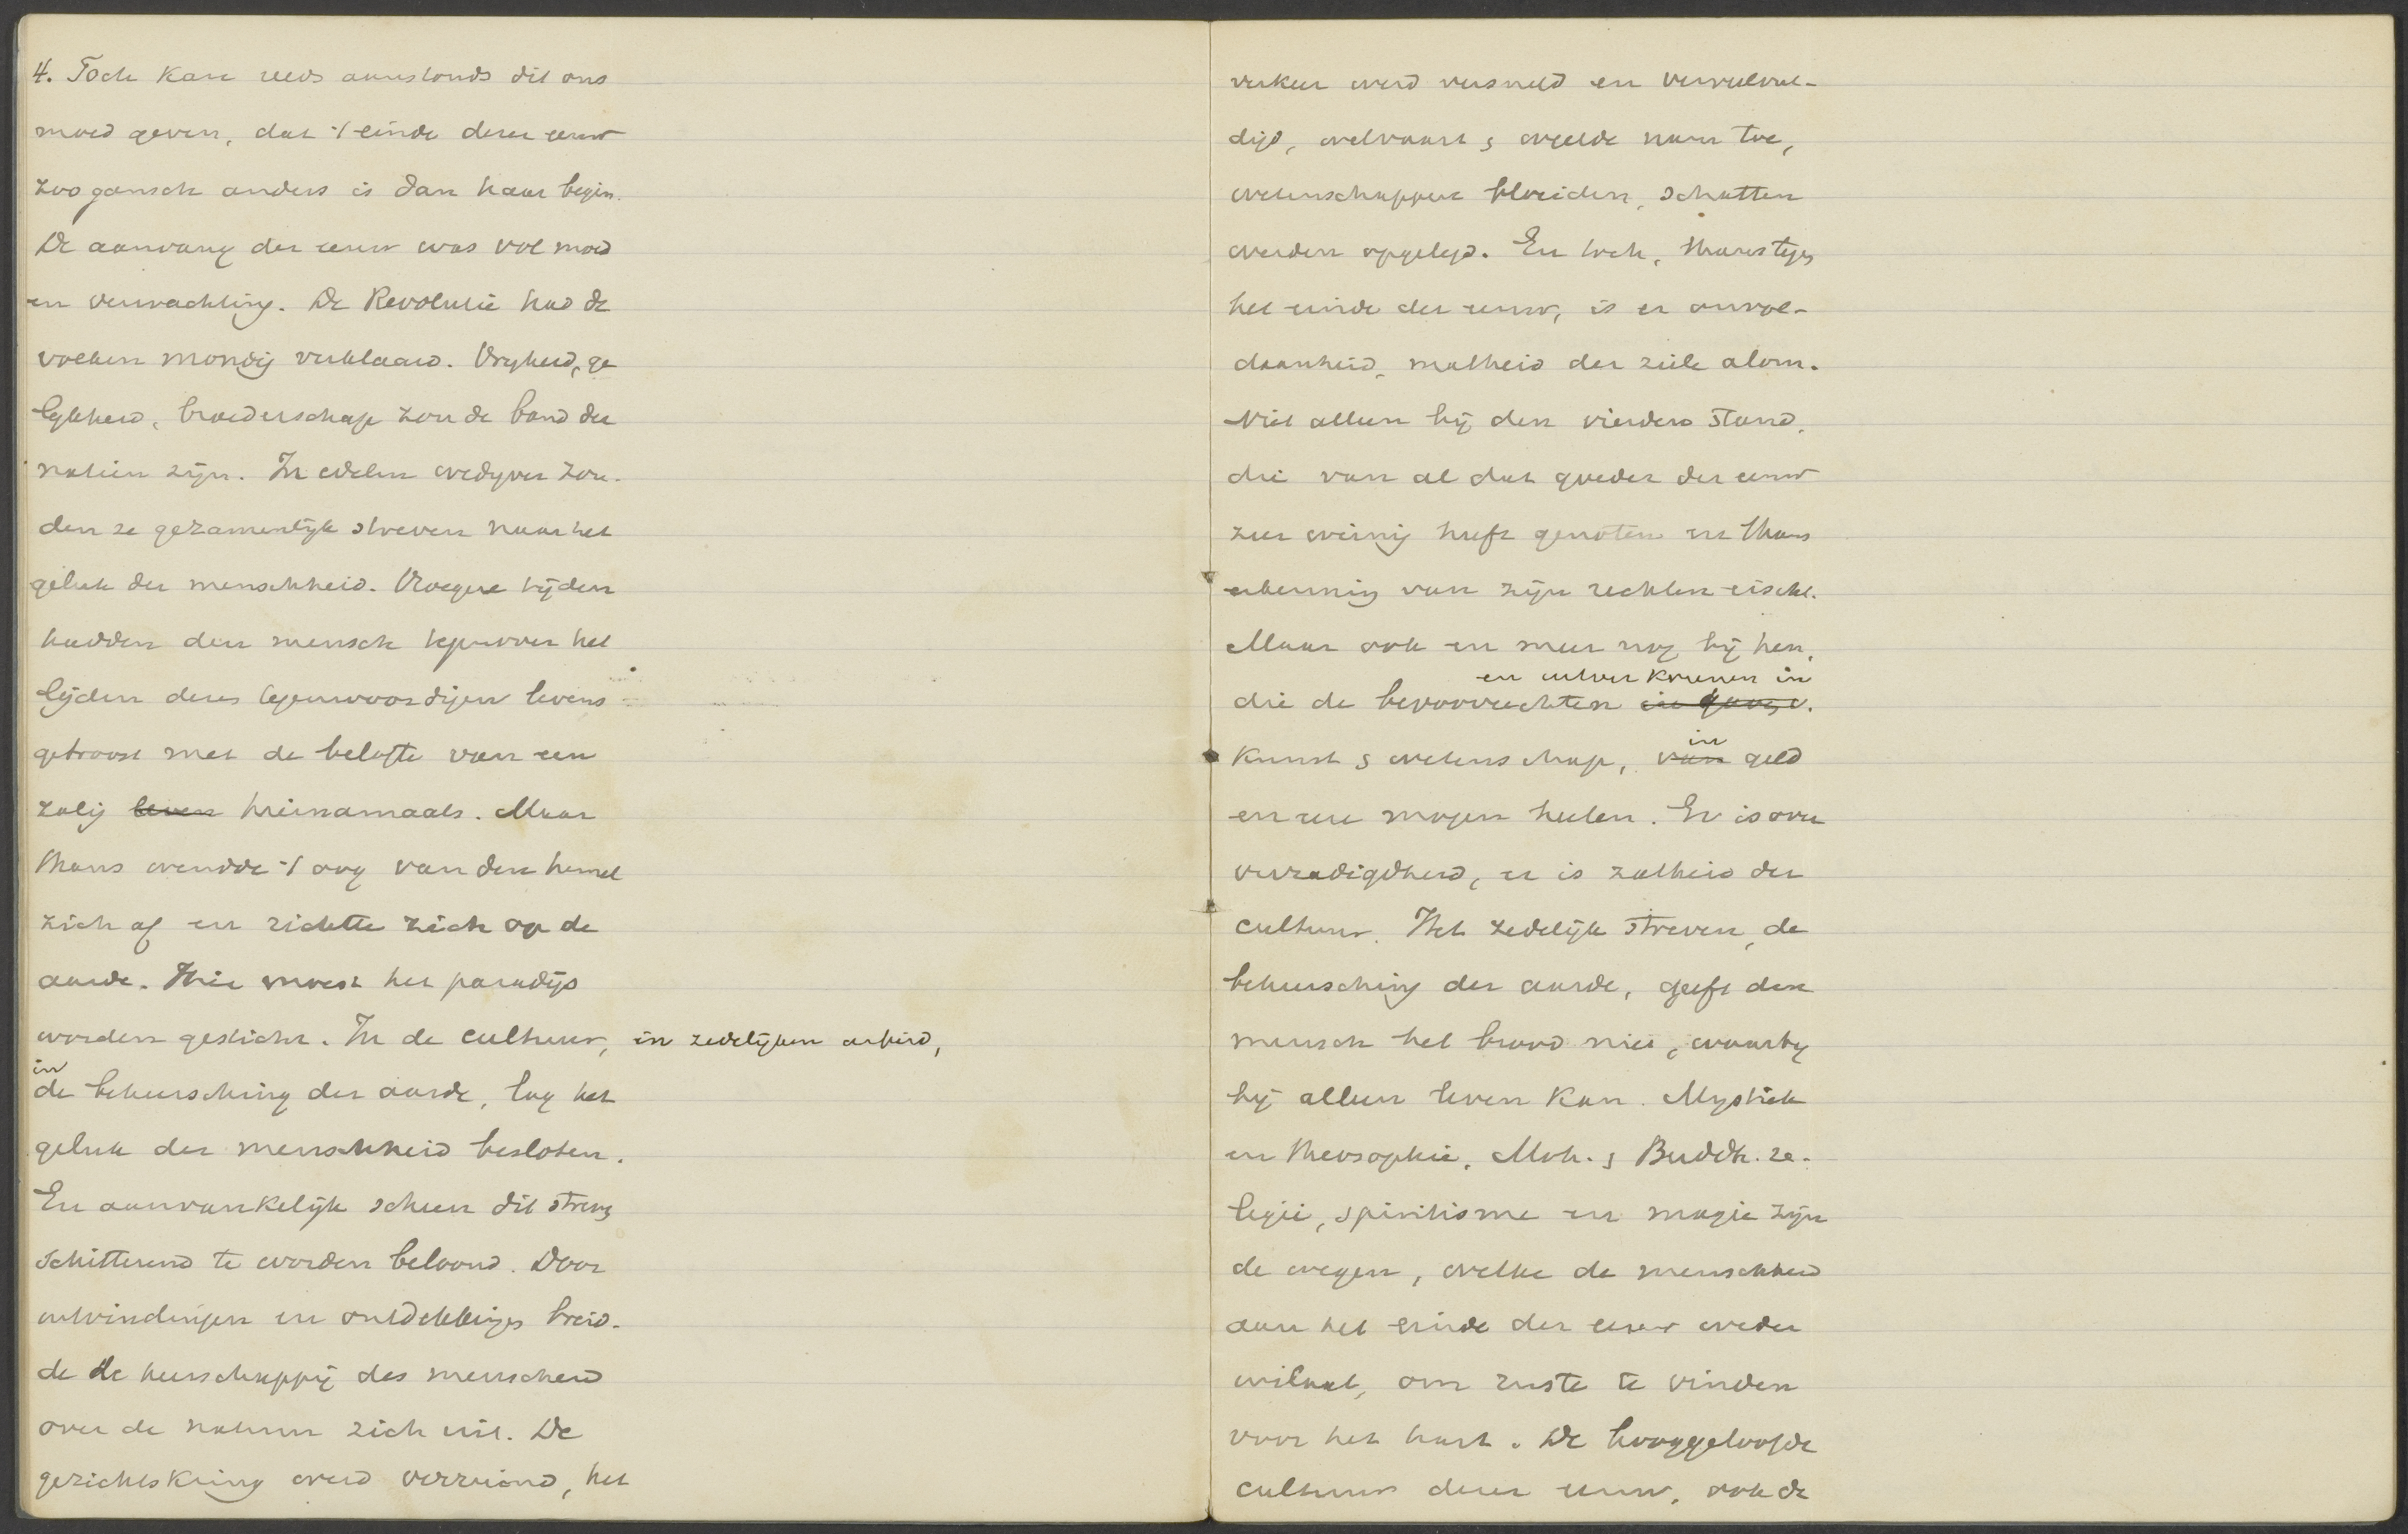 4. Toch kan reeds aanstonds dit ons
moed geven, dat 't einde dezer eeuw
zoo gansch anders is dan haar begin.
De aanvang der eeuw was vol moed
en verwachting. De Revolutie had de
volken mondig verklaard. Vryheid, ge
lykheid, broederschap zou de band der
natiën zijn. In edelen wedyver zou-
den ze gezamenlijk streven naar het
geluk der menschheid. Vroegere tijden
hadden den mensch tegenover het
lijden dezes tegenwoordigen levens
getroost met de belofte van een
zalig leven hiernamaals. Maar
thans wendde 't oog van den hemel
zich af en richtte zich op de
aarde. Hier moest het paradijs
worden gesticht. In de cultuur, in zedelijken arbeid,
in
de beheersching der aarde, lag het
geluk der menschheid besloten.
En aanvankelijk scheen dit streven
schitterend te worden beloond. Door
uitvindingen en ontdekkingen breid-
de de heerschappij des menschen
over de natuur zich uit. De
gezichtskring werd verruimd, het
verkeer werd versneld en verveelvul-
digd, welvaart & weelde nam toe,
wetenschappen bloeiden, schatten
werden opgelegd. En toch, thans tegen
het einde der eeuw, is er onvol-
daanheid, matheid der ziele alom.
Niet alleen bij den vierden stand,
die van al dat goede der eeuw
zeer weinig heeft genoten en thans
erkenning van zijn rechten eischt.
Maar ook en meer nog bij hen,
en uitverkorenen in
die de bevoorrechten in
kunst & wetenschap, van in geld
en eer mogen heeten. Er is over
verzadigdheid, er is zatheid der
cultuur. Het zedelijk streven, de
beheersching der aarde, geeft den
mensch het brood niet, waarby
hij alleen leven kan. Mystiek
en theosophie, Moh. & Buddh. re-
ligie, spiritisme en magie zijn
de wegen, welke de menschheid
aan het einde der eeuw weder
inslaat, om ruste te vinden
voor het hart. De hooggeloofde
cultuur dezer eeuw, ook de